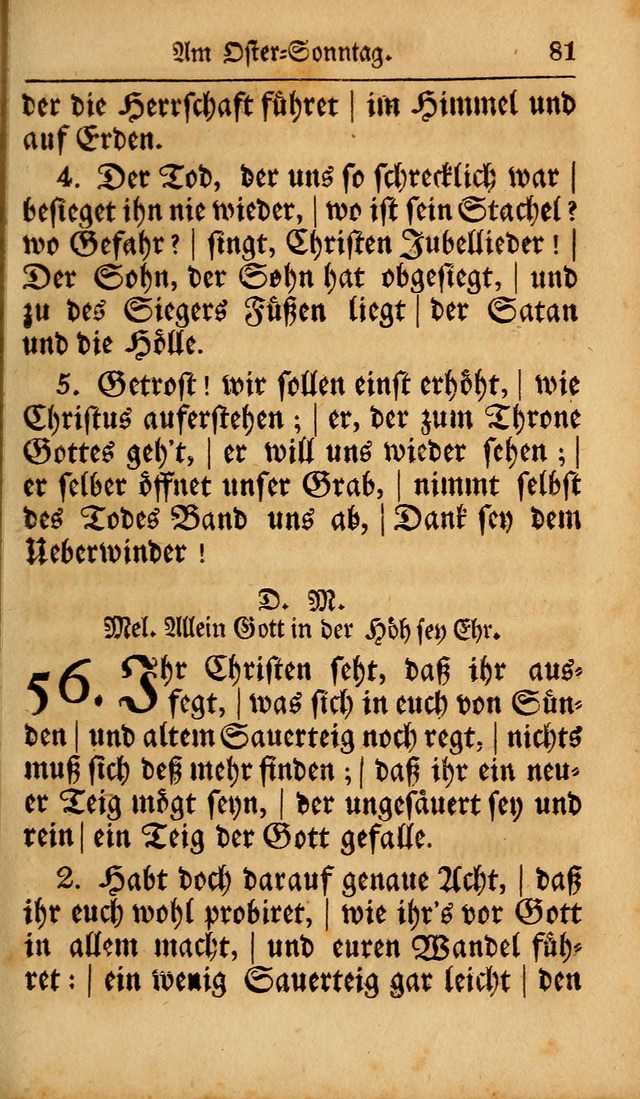 Am Oster-Sonntag. 81
der die Herrschaft führet | im Himmel und
auf Erden.
4. Der Tod, der uns so schrecklich war |
besieget ihn nie wieder, | wo ist sein Stachel?
wo Gefahr? | singt, Christen Jubellieder! |
Der Sohn, der Sohn hat obgesiegt, | und
zu des Siegers Füßen liegt | der Satan
und die Hölle.
5. Getrost! wir sollen einst erhöht, | wie
Christus auferstehen; | er, der zum Throne
Gottes geh't, | er will uns wieder sehen; |
er selber öffnet unser Grab, | nimmt selbst
des Todes Band uns ab, | Dank sey dem
Ueberwinder!
D. M.
Mel. Allein Gott in der Höh sey Ehr.
56. Ihr Christen seht, daß ihr aus-
fegt, | was sich in euch von Sün-
den | und altem Sauerteig noch regt, | nichts
muß sich deß mehr finden; | daß ihr ein neu-
er Teig mögt seyn, | der ungesäuert sey und
rein | ein Teig der Gott gefalle.
2. Habt doch darauf genaue Acht, | daß
ihr euch wohl probiret, | wie ihr's vor Gott
in allem macht, | und euren Wandel füh-
ret: | ein wenig Sauerteig gar leicht | den